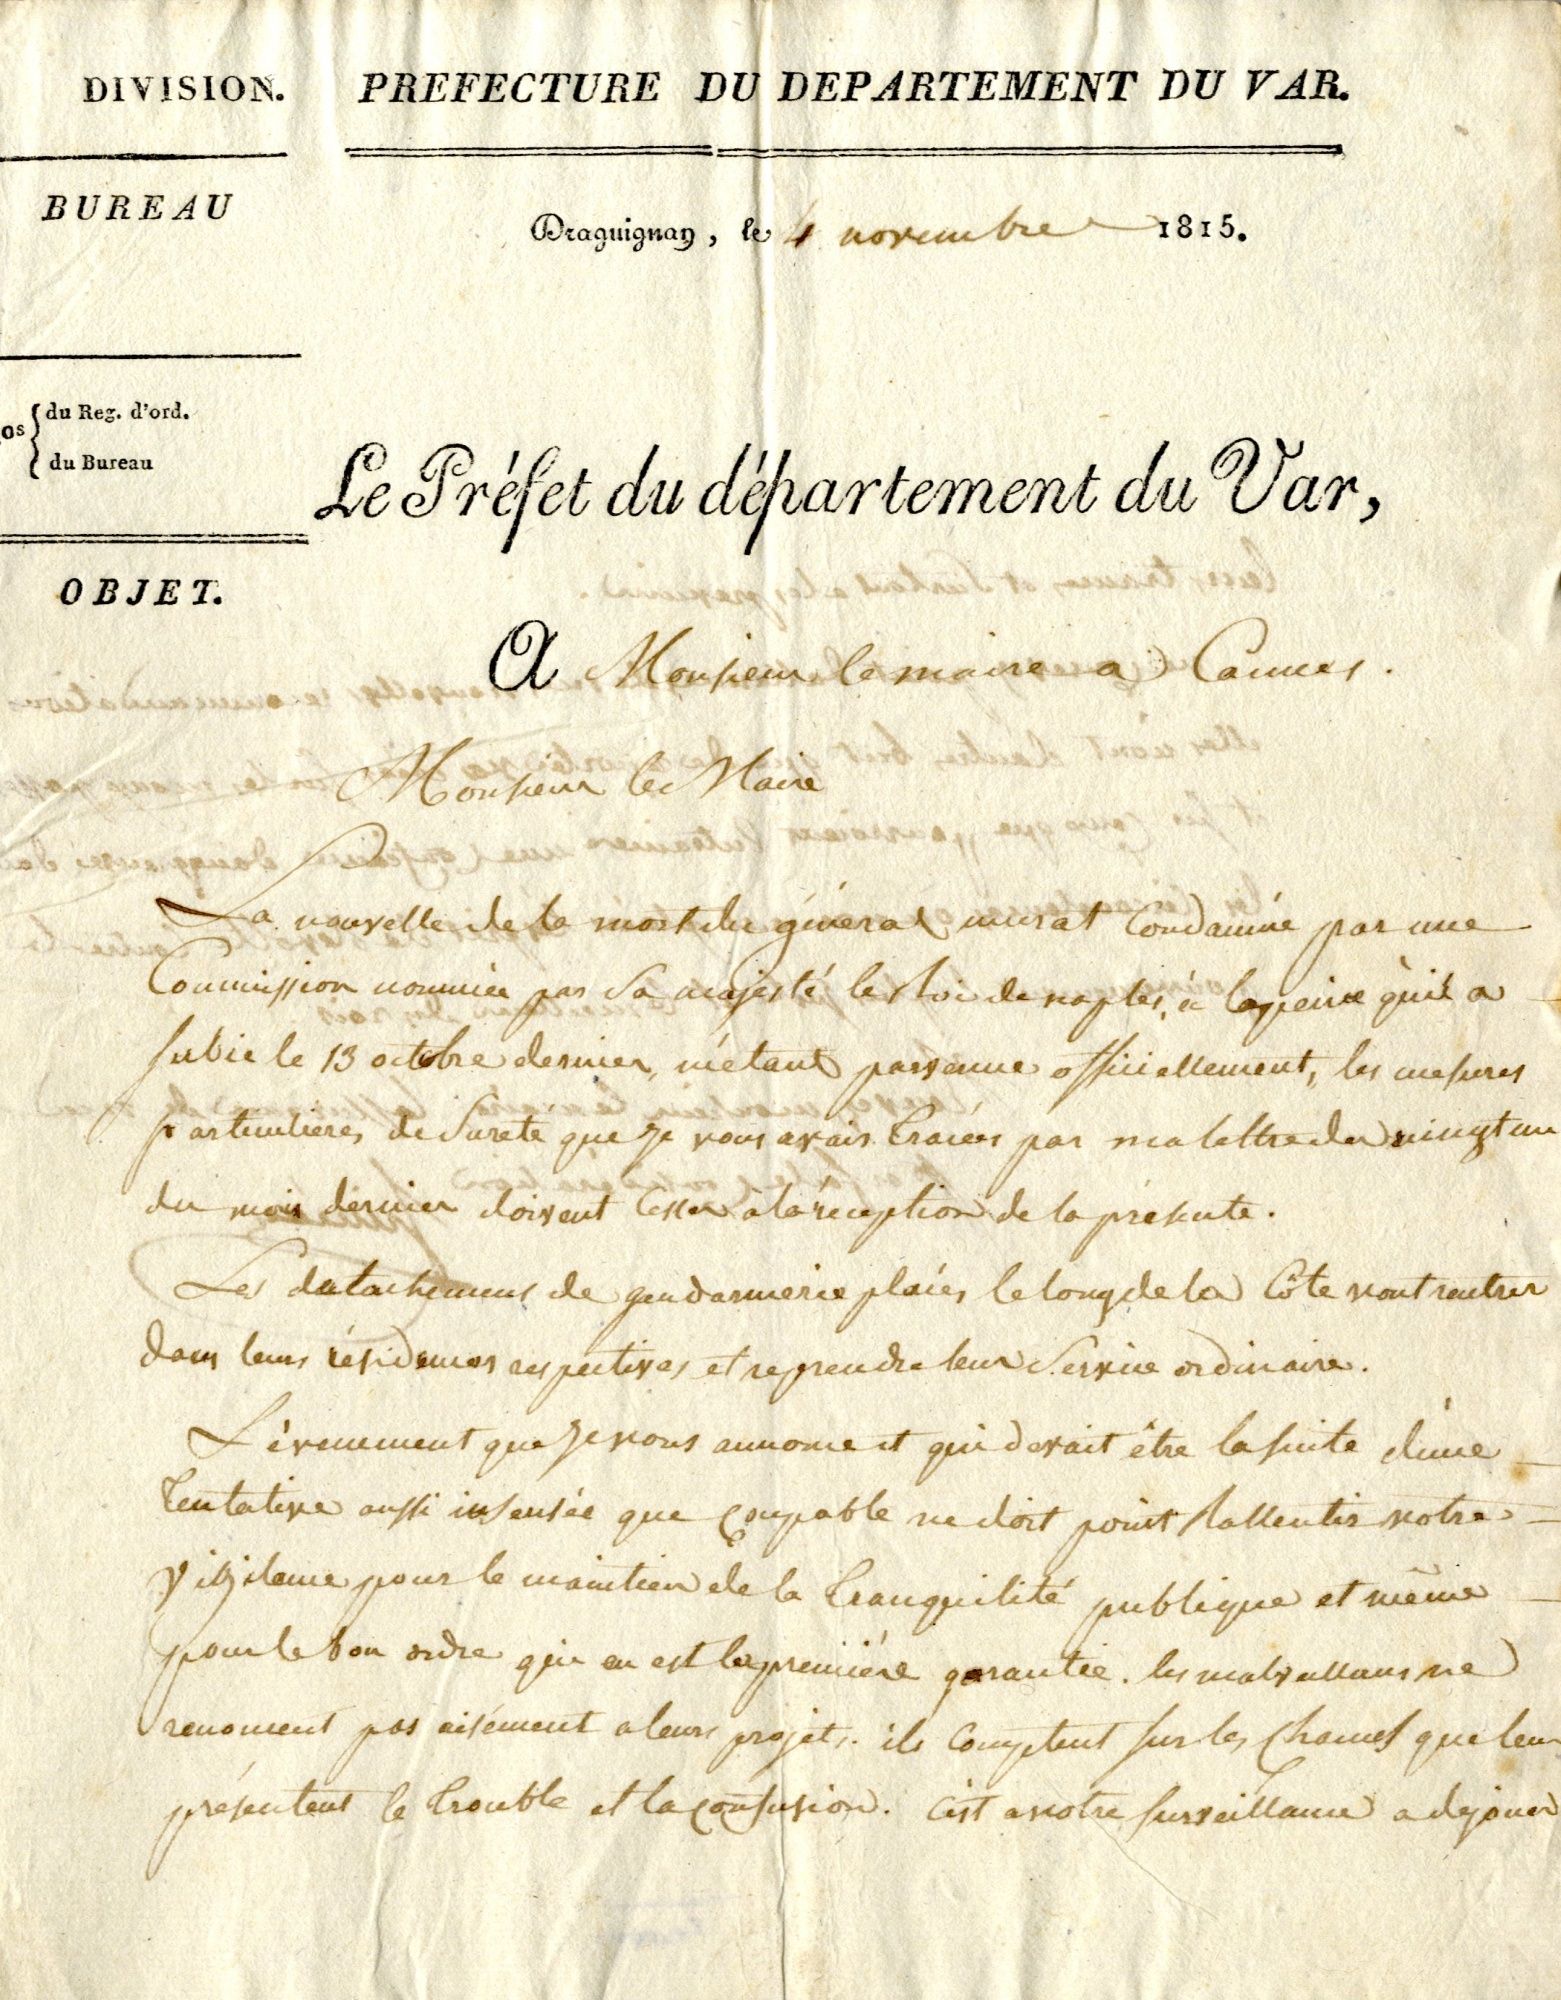 DIVISION.
PREFECTURE DU DEPARTEMENT DU VAR.
BUREAU
Draguignan, le 4 novembre 1815.
os { du Reg. d'ord.
du Bureau
Le Préfet du département du Var,
OBJET.
A Monsieur le maire a Cannes.
Monsieur le Maire
La nouvelle de la mort du géneral murat Condamné par une
Commission nommée par Sa majesté le Roi de naples, à la peine qu'il a
subie le 13 octobre dernier, m'etant parvenue officiellement, les mesures
particulieres de Sureté que je vous avais tracées par ma lettre du vingt un
du mois dernier doivent cesser à la réception de la présente.
Les datachemens de gendarmerie placés le long de la Côte vont rentrer
dans leurs résidences respectives et reprendre leur Service ordinaire.
L'évenement que je vous annonce et qui devait être la suite d'une
tentative aussi insensée que coupable ne doit point Rallentir votre
vigilance pour le maintien de la tranquilité publique et même
pour le bon ordre qui en est la premiére garantie. les malveillans ne
renoncent pas aisément a leurs projets. ils comptent sur les Chances que leur
présentent le trouble et la confusion. c'est a votre surveillance a dejouer